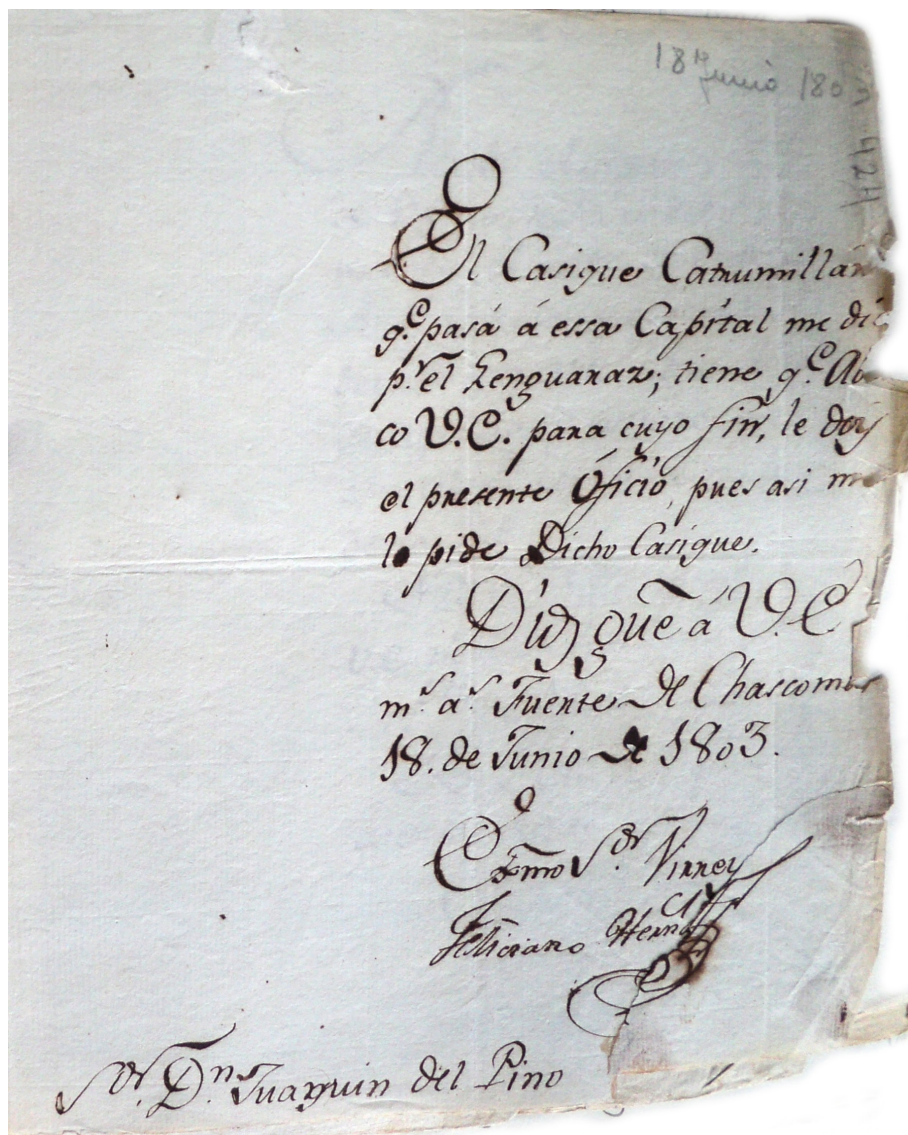 18 Junio 180
424
El Casique Catrumillan
q.e pasa á essa Capital me
p.r el Lenguaraz; tiene q.e
co V.E. para cuyo fin, le doy
el presente Oficio, pues asi
lo pide Dicho Casique.
Dios gue á V.E.
m.s a.s Fuerte de Chascomus
18. de Junio de 1803.
Exmo S.or Virrey
Feliciano
S.or D.n Juaquin del Pino